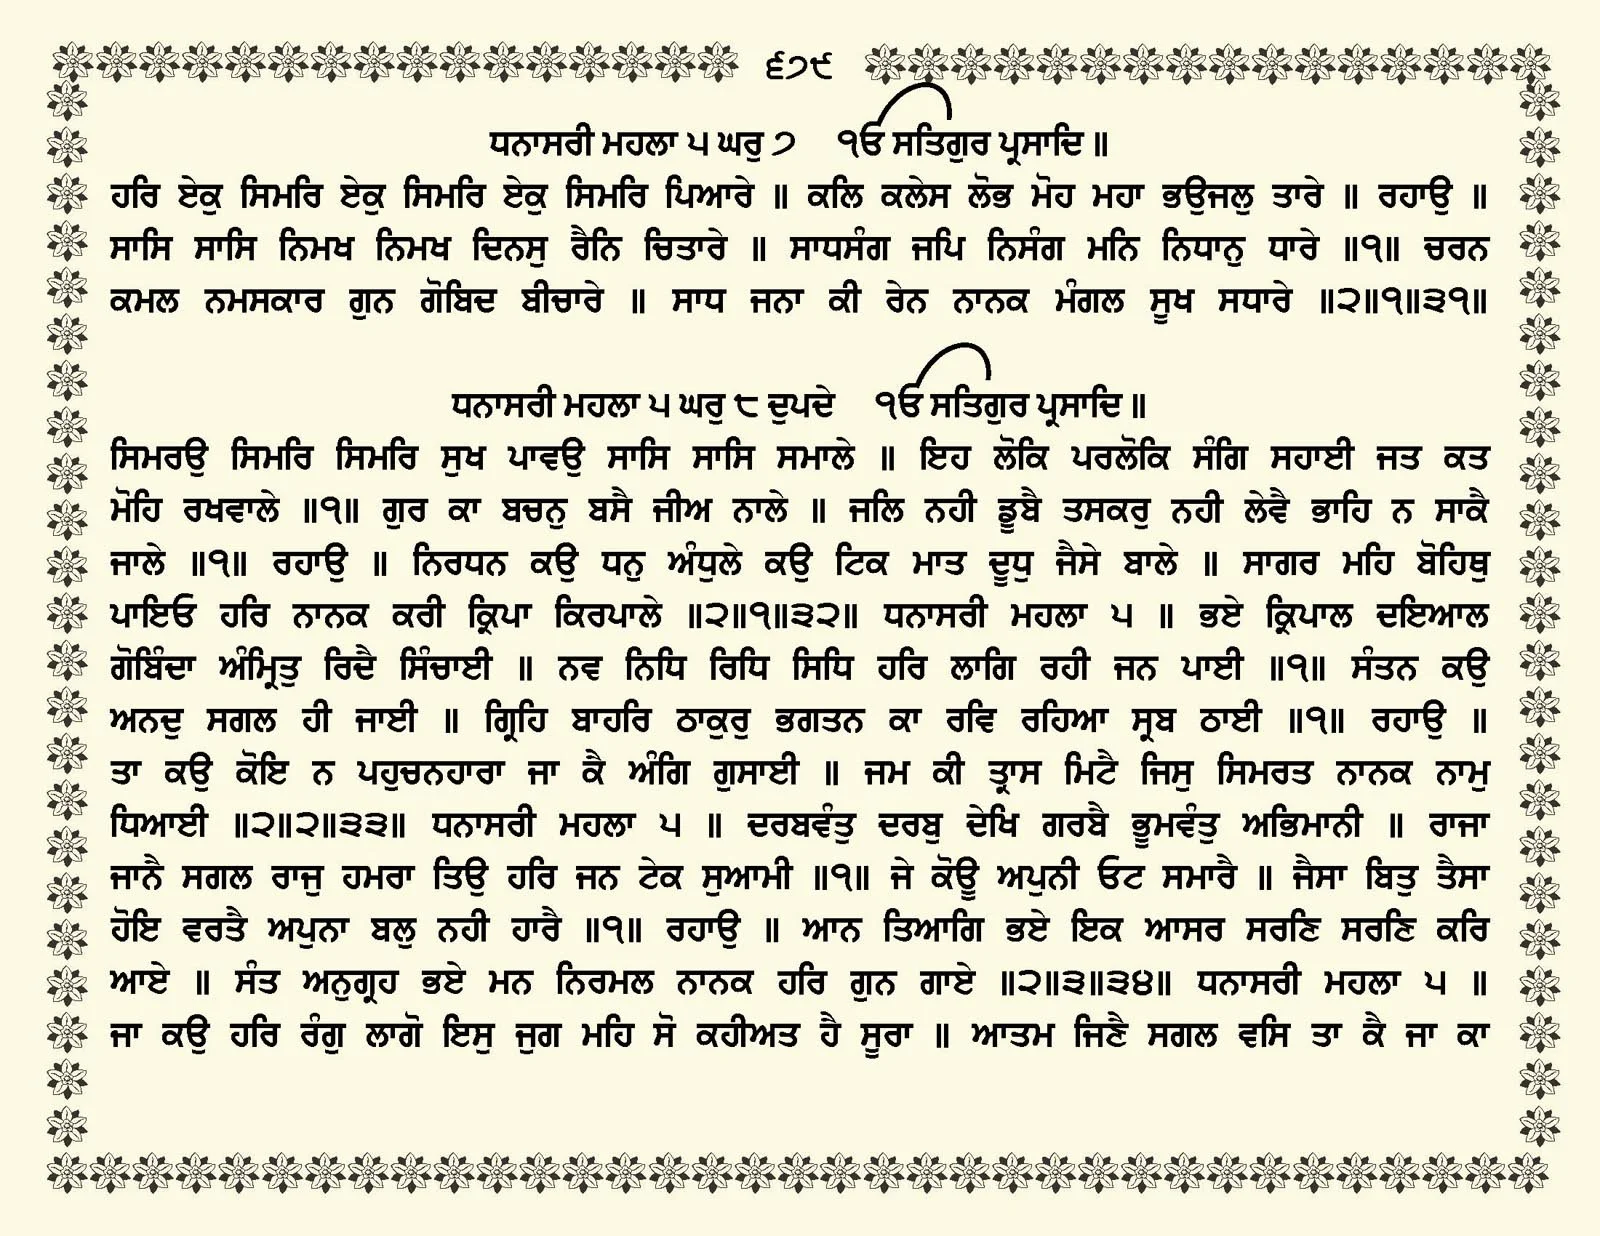 ੬੭੯
ਧਨਾਸਰੀ ਮਹਲਾ ੫ ਘਰੁ ੭ ੴ ਸਤਿਗੁਰ ਪ੍ਰਸਾਦਿ ॥
ਹਰਿ ਏਕੁ ਸਿਮਰਿ ਏਕੁ ਸਿਮਰਿ ਏਕੁ ਸਿਮਰਿ ਪਿਆਰੇ ॥ ਕਲਿ ਕਲੇਸ ਲੋਭ ਮੋਹ ਮਹਾ ਭਉਜਲੁ ਤਾਰੇ ॥ ਰਹਾਉ ॥
ਸਾਸਿ ਸਾਸਿ ਨਿਮਖ ਨਿਮਖ ਦਿਨਸੁ ਰੈਨਿ ਚਿਤਾਰੇ ॥ ਸਾਧਸੰਗ ਜਪਿ ਨਿਸੰਗ ਮਨਿ ਨਿਧਾਨੁ ਧਾਰੇ ॥੧॥ ਚਰਨ
ਕਮਲ ਨਮਸਕਾਰ ਗੁਨ ਗੋਬਿਦ ਬੀਚਾਰੇ ॥ ਸਾਧ ਜਨਾ ਕੀ ਰੇਨ ਨਾਨਕ ਮੰਗਲ ਸੂਖ ਸਧਾਰੇ ॥੨॥੧॥੩੧॥
ਧਨਾਸਰੀ ਮਹਲਾ ੫ ਘਰੁ ੮ ਦੁਪਦੇ ੴ ਸਤਿਗੁਰ ਪ੍ਰਸਾਦਿ ॥
ਸਿਮਰਉ ਸਿਮਰਿ ਸਿਮਰਿ ਸੁਖ ਪਾਵਉ ਸਾਸਿ ਸਾਸਿ ਸਮਾਲੇ ॥ ਇਹ ਲੋਕਿ ਪਰਲੋਕਿ ਸੰਗਿ ਸਹਾਈ ਜਤ ਕਤ
ਮੋਹਿ ਰਖਵਾਲੇ ॥੧॥ ਗੁਰ ਕਾ ਬਚਨੁ ਬਸੈ ਜੀਅ ਨਾਲੇ ॥ ਜਲਿ ਨਹੀ ਡੂਬੈ ਤਸਕਰੁ ਨਹੀ ਲੇਵੈ ਭਾਹਿ ਨ ਸਾਕੈ
ਜਾਲੇ ॥੧॥ ਰਹਾਉ ॥ ਨਿਰਧਨ ਕਉ ਧਨੁ ਅੰਧੁਲੇ ਕਉ ਟਿਕ ਮਾਤ ਦੂਧੁ ਜੈਸੇ ਬਾਲੇ ॥ ਸਾਗਰ ਮਹਿ ਬੋਹਿਥੁ
ਪਾਇਓ ਹਰਿ ਨਾਨਕ ਕਰੀ ਕ੍ਰਿਪਾ ਕਿਰਪਾਲੇ ॥੨॥੧॥੩੨॥ ਧਨਾਸਰੀ ਮਹਲਾ ੫ ॥ ਭਏ ਕ੍ਰਿਪਾਲ ਦਇਆਲ
ਗੋਬਿੰਦਾ ਅੰਮ੍ਰਿਤੁ ਰਿਦੈ ਸਿੰਚਾਈ ॥ ਨਵ ਨਿਧਿ ਰਿਧਿ ਸਿਧਿ ਹਰਿ ਲਾਗਿ ਰਹੀ ਜਨ ਪਾਈ ॥੧॥ ਸੰਤਨ ਕਉ
ਅਨਦੁ ਸਗਲ ਹੀ ਜਾਈ ॥ ਗ੍ਰਿਹਿ ਬਾਹਰਿ ਠਾਕੁਰੁ ਭਗਤਨ ਕਾ ਰਵਿ ਰਹਿਆ ਸ੍ਰਬ ਠਾਈ ॥੧॥ ਰਹਾਉ ॥
ਤਾ ਕਉ ਕੋਇ ਨ ਪਹੁਚਨਹਾਰਾ ਜਾ ਕੈ ਅੰਗਿ ਗੁਸਾਈ ॥ ਜਮ ਕੀ ਤ੍ਰਾਸ ਮਿਟੈ ਜਿਸੁ ਸਿਮਰਤ ਨਾਨਕ ਨਾਮੁ
ਧਿਆਈ ॥੨॥੨॥੩੩॥ ਧਨਾਸਰੀ ਮਹਲਾ ੫ ॥ ਦਰਬਵੰਤੁ ਦਰਬੁ ਦੇਖਿ ਗਰਬੈ ਭੂਮਵੰਤੁ ਅਭਿਮਾਨੀ ॥ ਰਾਜਾ
ਜਾਨੈ ਸਗਲ ਰਾਜੁ ਹਮਰਾ ਤਿਉ ਹਰਿ ਜਨ ਟੇਕ ਸੁਆਮੀ ॥੧॥ ਜੇ ਕੋਊ ਅਪੁਨੀ ਓਟ ਸਮਾਰੈ ॥ ਜੈਸਾ ਬਿਤੁ ਤੈਸਾ
ਹੋਇ ਵਰਤੈ ਅਪੁਨਾ ਬਲੁ ਨਹੀ ਹਾਰੈ ॥੧॥ ਰਹਾਉ ॥ ਆਨ ਤਿਆਗਿ ਭਏ ਇਕ ਆਸਰ ਸਰਣਿ ਸਰਣਿ ਕਰਿ
ਆਏ ॥ ਸੰਤ ਅਨੁਗ੍ਰਹ ਭਏ ਮਨ ਨਿਰਮਲ ਨਾਨਕ ਹਰਿ ਗੁਨ ਗਾਏ ॥੨॥੩॥੩੪॥ ਧਨਾਸਰੀ ਮਹਲਾ ੫ ॥
ਜਾ ਕਉ ਹਰਿ ਰੰਗੁ ਲਾਗੋ ਇਸੁ ਜੁਗ ਮਹਿ ਸੋ ਕਹੀਅਤ ਹੈ ਸੂਰਾ ॥ ਆਤਮ ਜਿਣੈ ਸਗਲ ਵਸਿ ਤਾ ਕੈ ਜਾ ਕਾ